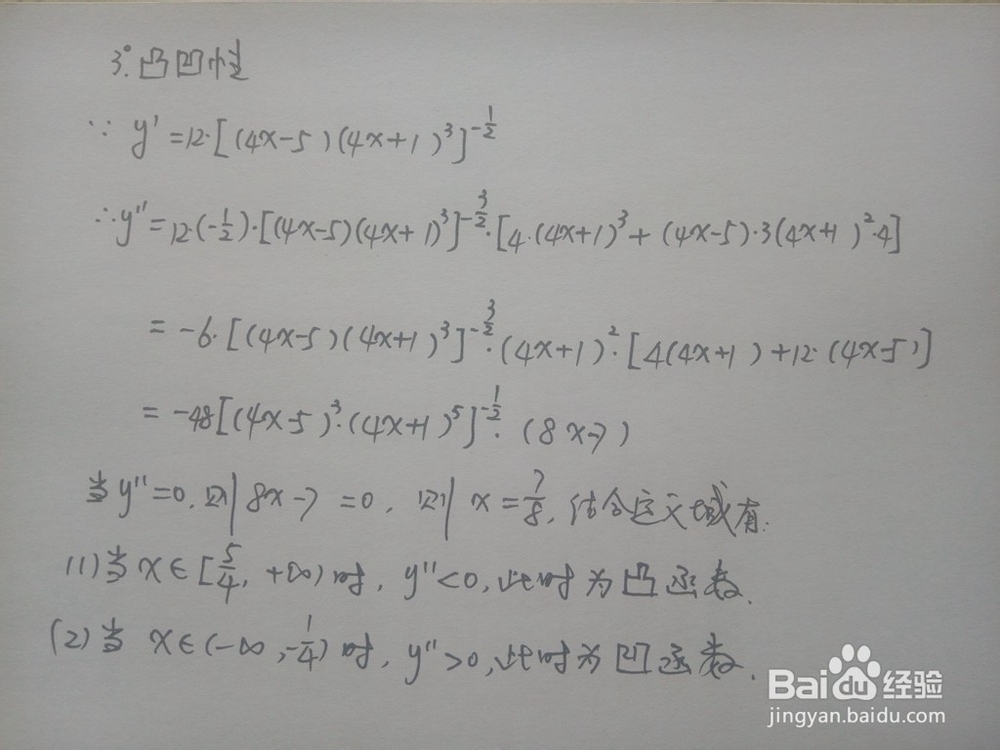 3°.凸凹性
∵ y'=12·[(4x-5)(4x+1)³]^{-1/2}
∴y''=12·(-1/2)·[(4x-5)(4x+1)³]^{-3/2}·[4·(4x+1)³+(4x-5)·3(4x+1)²·4]
=-6·[(4x-5)(4x+1)³]^{-3/2}·(4x+1)²·[4(4x+1)+12·(4x-5)]
=-48[(4x-5)³·(4x+1)⁵]^{-1/2}·(8x-7)
当y''=0,则8x-7=0,则x=7/8,结合定义域有:
(1)当x∈[5/4,+∞)时,y''<0,此时为凸函数.
(2)当 x∈(-∞,-1/4)时,y''>0,此时为凹函数.
Baidu经验
jingyan.baidu.com